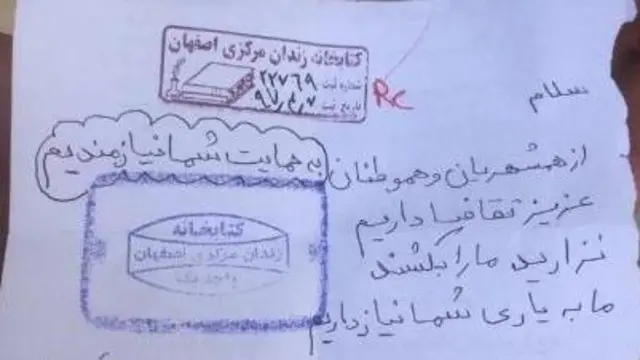 کتابخانه زندان مرکزی اصفهان
شماره ثبت ۲۲۷۶۹
تاریخ ثبت ۹۷٫۳٫۷
Rc
سلام
به حمایت شما نیازمندیم
از همشهریان و هموطنان
عزیز تقاضا داریم
نزارید ما را بکشند
ما به یاری شما نیاز داریم
کتابخانه
زندان مرکزی اصفهان
واحد یک